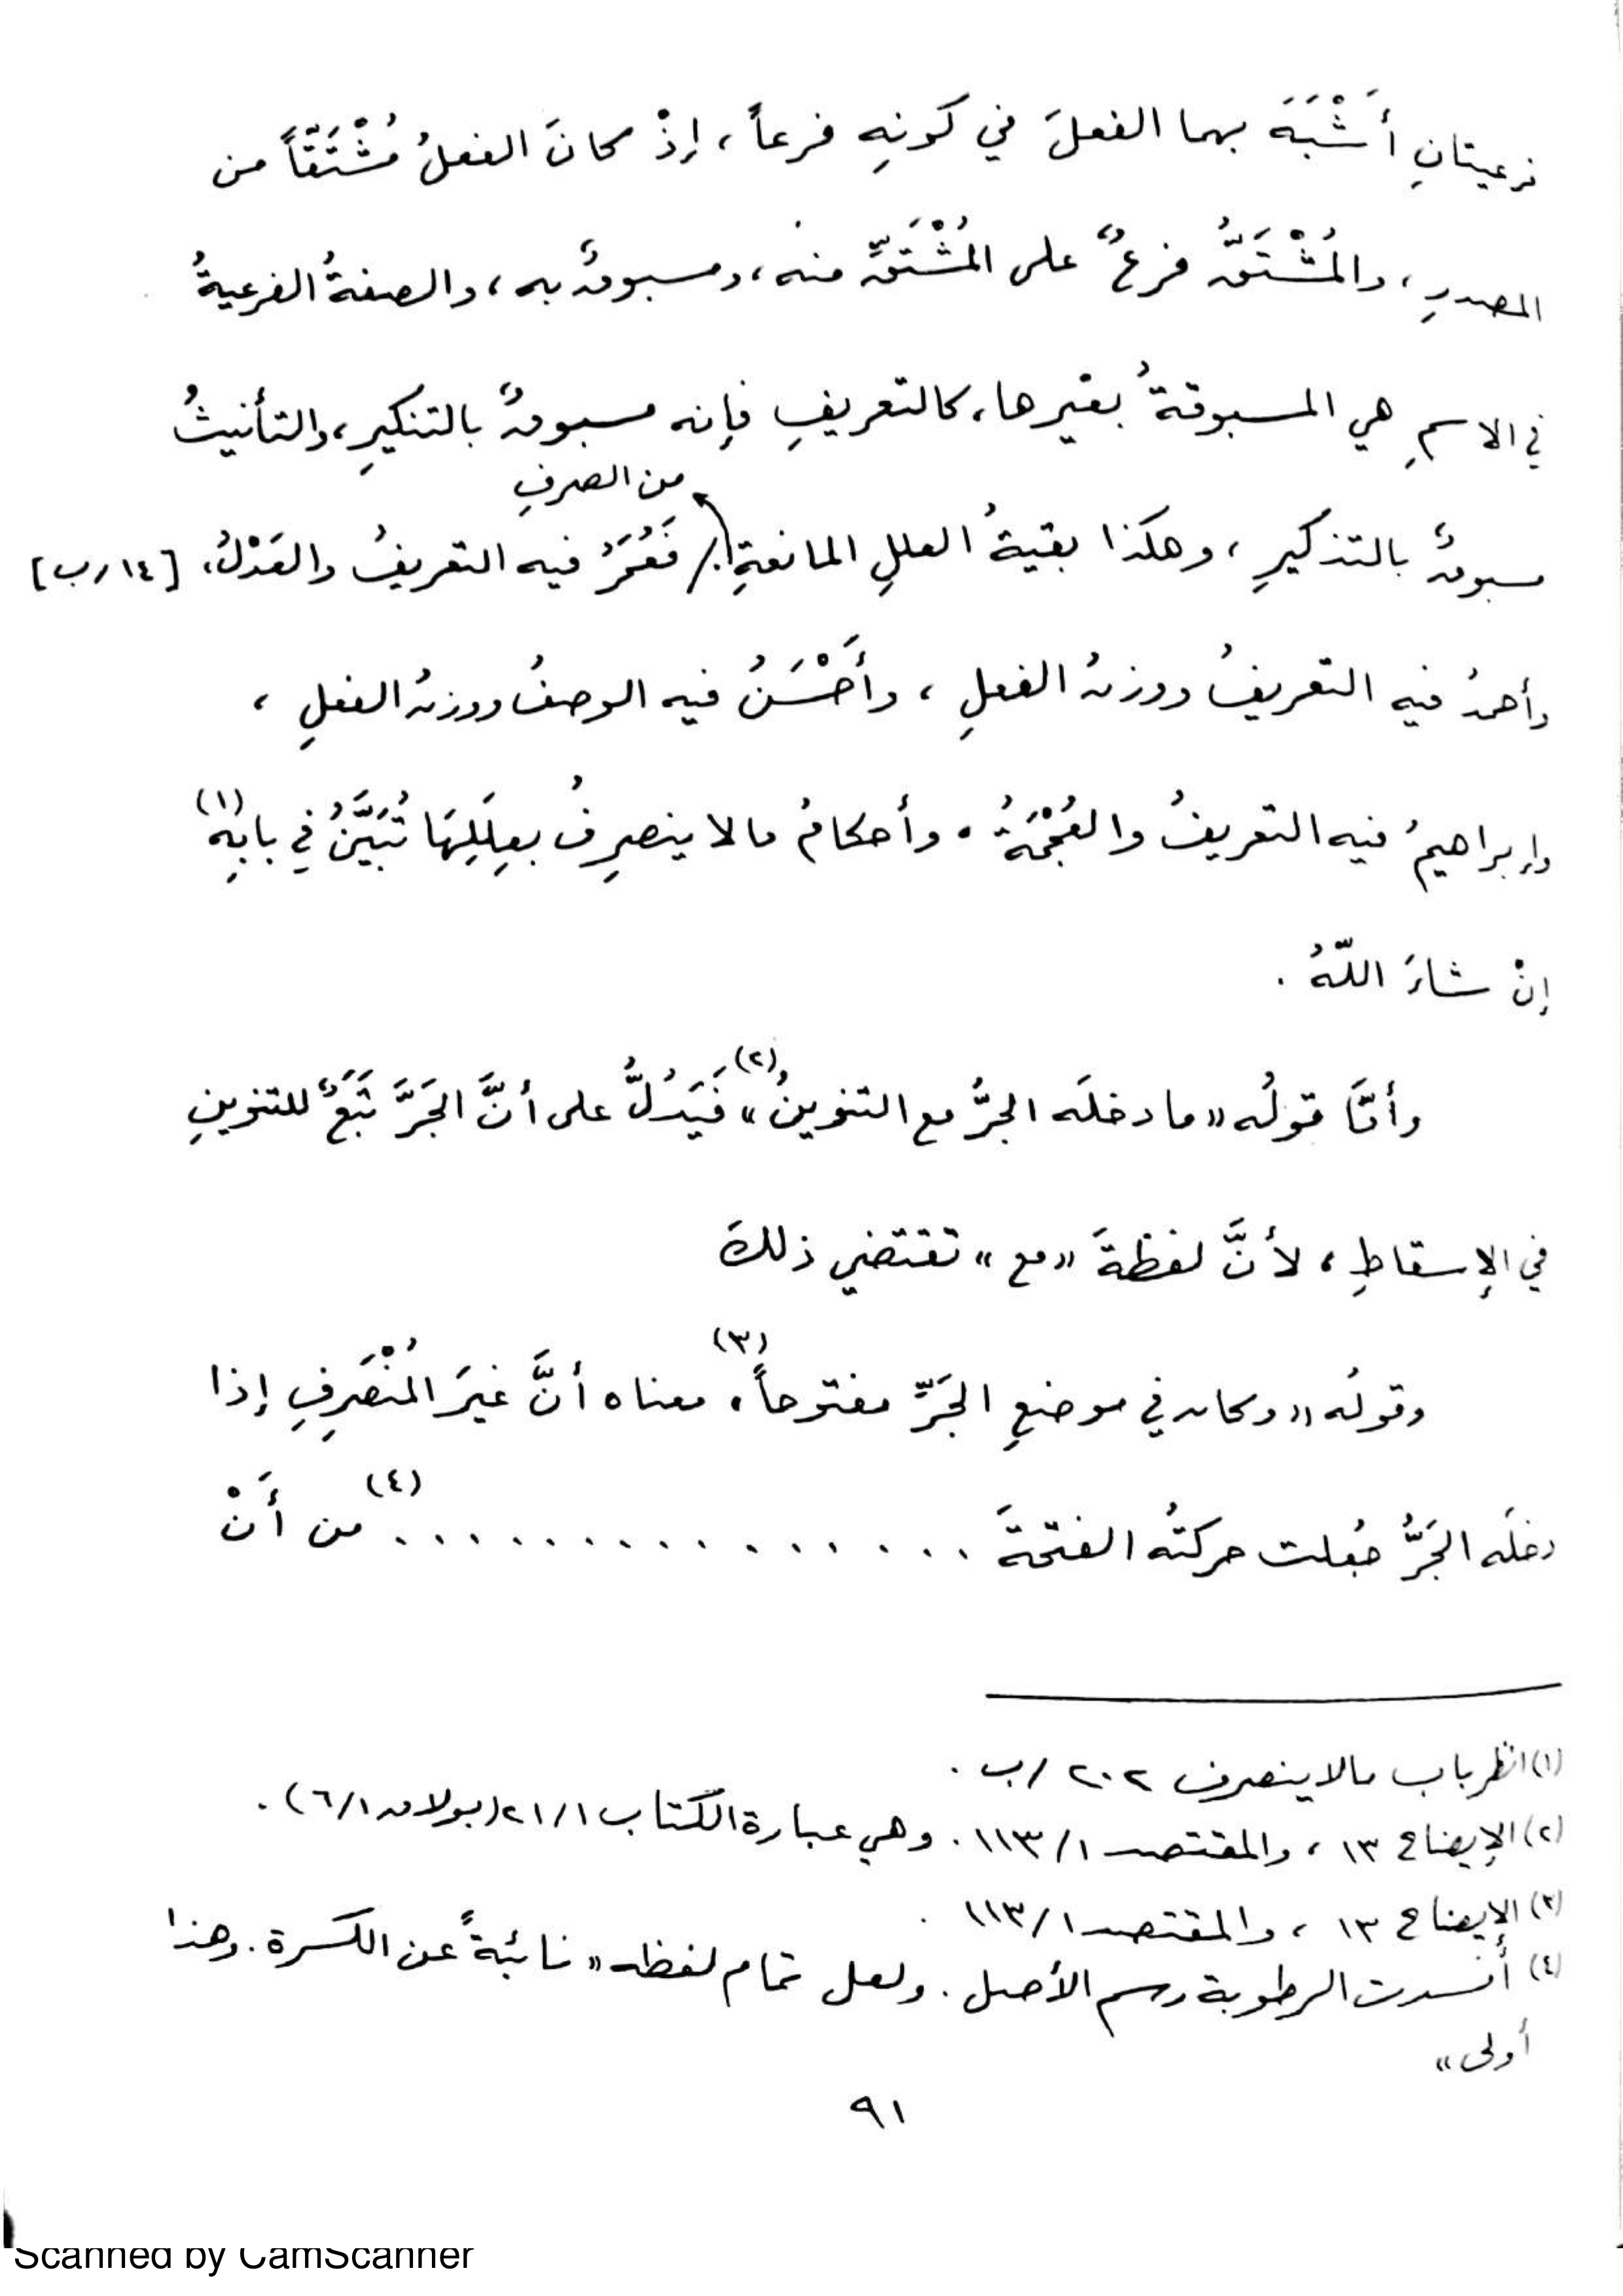 فرعيتانِ أَشْبَهَ بهما الفعلَ في كونهِ فرعاً، إذْ كانَ الفعلُ مُشْتَقّاً من
المصدرِ، والمُشْتَقُّ فرعٌ على المُشْتَقِّ منه، ومسبوقٌ به، والصفةُ الفرعيةُ
في الاسمِ هي المسبوقةُ بغيرها، كالتعريفِ فإنه مسبوقٌ بالتنكيرِ، والتأنيثُ
من الصرفِ
مسبوقٌ بالتذكيرِ، وهكذا بقيةُ العللِ المانعةِ./ فَعُمَرُ فيه التعريفُ والعَدْلُ، [١٤/ب]
وأحمدُ فيه التعريفُ ووزنُ الفعلِ، وأَحْسَنُ فيه الوصفُ ووزنُ الفعلِ،
وإبراهيمُ فيه التعريفُ والعُجْمَةُ. وأحكامُ مالا ينصرِفُ بعِلَلِهَا تُبَيَّنُ في بابهِ(١)
إنْ شاءَ اللّهُ.
وأمّا قولُه «ما دخلَه الجرُّ مع التنوينِ»(٢) فَيَدُلُّ على أنَّ الجَرَّ تَبَعٌ للتنوينِ
في الإسقاطِ، لأنَّ لفظةَ «مع» تقتضي ذلكَ
وقولُه «وكان في موضعِ الجَرِّ مفتوحاً(٣)، معناه أنَّ غيرَ المُنْصَرِفِ إذا
دخلَه الجَرُّ جُعلت حركتُه الفتحةَ . . . . . . . . . . . . . . .(٤) من أَنْ
(١) انظر باب مالا ينصرف ٢٠٢/ب.
(٢) الإيضاح ١٣، والمقتصد ١/١١٣. وهي عبارة الكتاب ٢١/١ (بولاق ٦/١).
(٣) الإيضاح ١٣، والمقتصد ١/١١٣.
(٤) أفسدت الرطوبة رسم الأصل. ولعل تمام لفظه «نائبةً عن الكسرة. وهذا
أولى»
٩١
Scanned by CamScanner